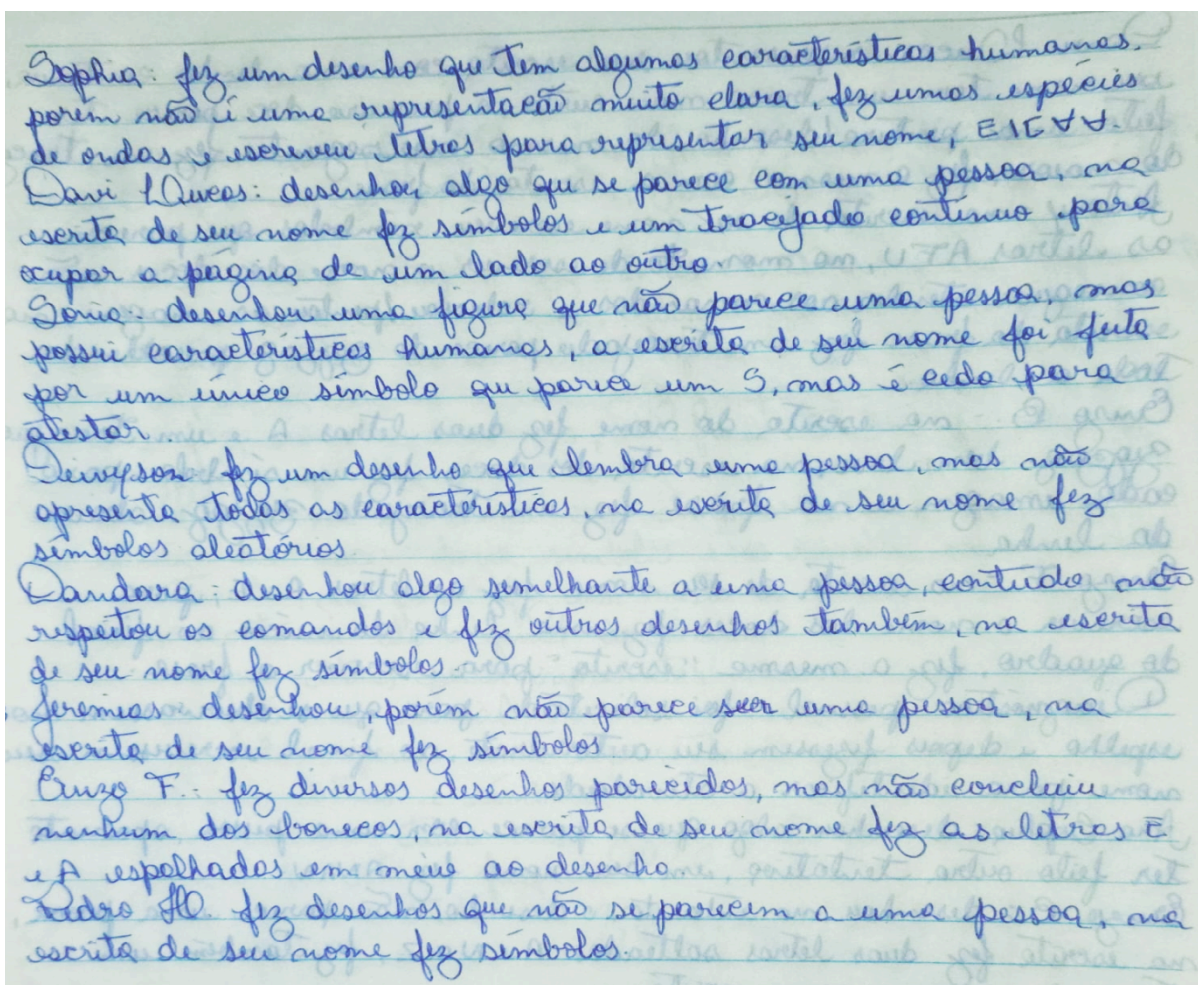 Sophia: fez um desenho que tem algumas características humanas.
porém não é uma representação muito clara, fez umas espécies
de ondas e escreveu letras para representar seu nome, E I E A A.
Davi Lucas: desenhou algo que se parece com uma pessoa, na
escrita de seu nome fez símbolos e um tracejado contínuo para
ocupar a página de um lado ao outro
Sonia: desenhou uma figura que não parece uma pessoa, mas
possui características humanas, a escrita de seu nome foi feita
por um único símbolo que parece um S, mas é cedo para
atestar
fez um desenho que lembra uma pessoa, mas não
apresenta todas as características, na escrita de seu nome fez
símbolos aleatórios
Dandara: desenhou algo semelhante a uma pessoa, contudo não
respeitou os comandos e fez outros desenhos também, na escrita
de seu nome fez símbolos.
Jeremias desenhou, porém não parece ser uma pessoa, na
escrita de seu nome fez símbolos.
Enzo F.: fez diversos desenhos parecidos, mas não concluiu
nenhum dos bonecos, na escrita de seu nome fez as letras E
e A espalhados em meio ao desenho
Pedro H. fez desenhos que não se parecem a uma pessoa, na
escrita de seu nome fez símbolos.